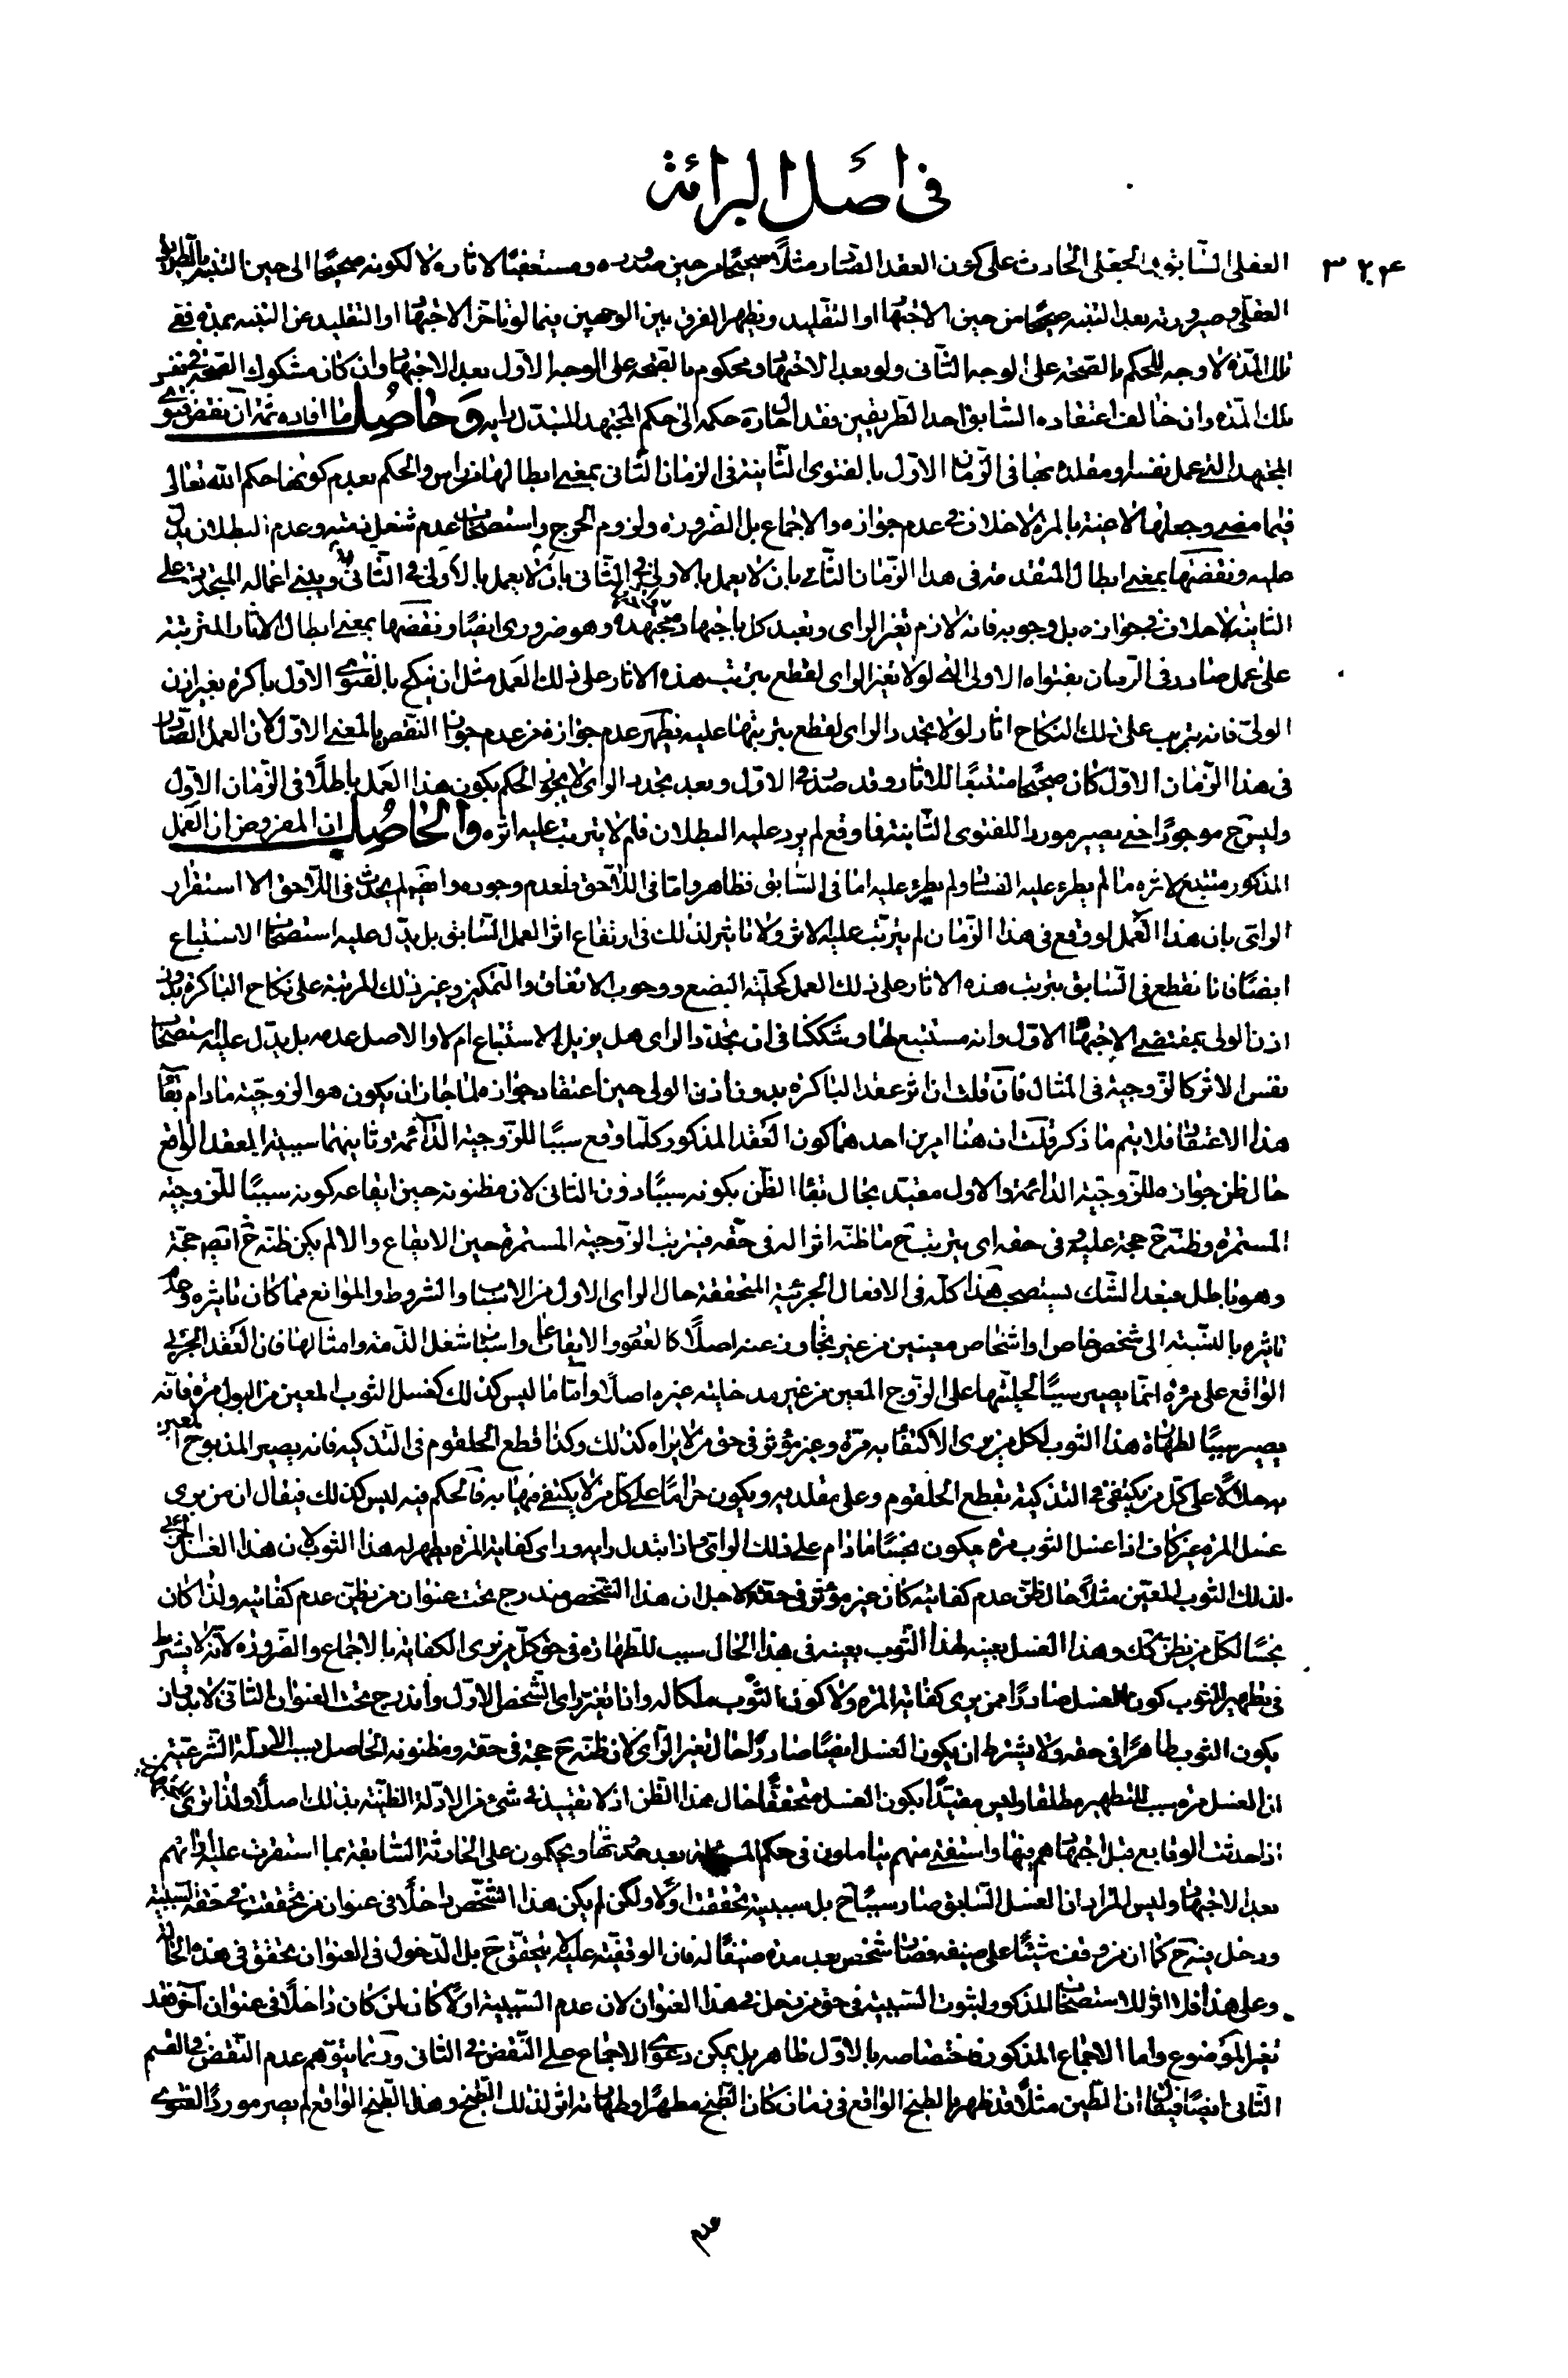 في اصل البرائة
٣٢٤
العقلي السابق والجعلي الحادث على كون العقد الصادر مثلاً صحيحا من حين صدوره ومستعقبا لاثاره لا لكونه صحيحا الى حين التنبه بالطريق
العقلي وصيرورته بعد التنبه صحيحا من حين الاجتهاد او التقليد ويظهر الفرق بين الوجهين فيما لو تاخر الاجتهاد او التقليد عن التنبه بمدة ففي
تلك المدة لا وجه للحكم بالصحة على الوجه الثاني ولو بعد الاجتهاد ومحكوم بالصحة على الوجه الاول بعد الاجتهاد وان كان مشكوك الصحة في نفس
تلك المدة وان خالف اعتقاده السابق احد الطريقين فقد احال حكمه الى حكم المجتهد المتبدل رايه وحاصل ما افاده ثمة ان نقض فتوى
المجتهد التي عمل نفسه ومقلده بها في الزمان الاول بالفتوى الثانية في الزمان الثاني بمعنى ابطالها من راس والحكم بعدم كونها حكم الله تعالى
فيما مضى وجعلها لاغية بالمرة لا خلاف في عدم جوازه والاجماع بل الضرورة ولزوم الحرج واستصحاب عدم شغل ذمته وعدم البطلان يدل
عليه ونقضها بمعنى ابطال المتقدمة في هذا الزمان الثاني بان لا يعمل بالاولى في الثاني ويبني اعماله المتجددة على
الثانية لا خلاف في جوازه بل وجوبه فانه لازم تغير الراى وتعبد كل باجتهاد مجتهده وهو ضروري ايضا ونقضها بمعنى ابطال الاثار المترتبة
على عمل صادر في الزمان بفتواه الاولى التي لولا تغير الراى لقطع بترتب هذه الاثار على ذلك العمل مثل ان ينكح بالفتوى الاول باكرة بغير اذن
الولي فانه يترتب على ذلك النكاح اثار لولا تجدد الراى لقطع بترتبها عليه يظهر عدم جوازه من عدم جواز النقض بالمعنى الاول لان العمل الصادر
في هذا الزمان الاول كان صحيحا مستتبعا للاثار وقد صدر في الاول وبعد تجدد الراى لا يجوز الحكم بكون هذا العمل باطلا في الزمان الاول
وليس ح موجودا حتى يصير موردا للفتوى الثانية فما وقع لم يرد عليه البطلان فلم لا يترتب عليه اثره والحاصل ان المفروض ان العمل
المذكور مستتبع لاثره ما لم يطرء عليه الفساد ولم يطرء عليه اما في السابق فظاهر واما في اللاحق فلعدم وجوده وايضا لم يحدث في اللاحق الا استقرار
الراى بان هذا العمل لو وقع في هذا الزمان لم يترتب عليه الاثر ولا تاثير لذلك في ارتفاع اثر العمل السابق بل يدل عليه استصحاب الاستتباع
ايضا فانا نقطع في السابق بترتب هذه الاثار على ذلك العمل كحلية البضع ووجوب الانفاق والتمكين وغير ذلك المرتبة على نكاح الباكرة بدون
اذن الولي بمقتضى الاجتهاد الاول وانه مستتبع لها وشككنا في ان تجدد الراى هل يزيل الاستتباع ام لا والاصل عدمه بل يدل عليه استصحاب
نفس الاثر كالزوجية في المثال فان قلت ان اثر عقد الباكرة بدون اذن الولي حين اعتقاد جوازه لما جاز ان يكون هو الزوجية مادام بقاء
هذا الاعتقاد فلا يتم ما ذكر قلت ان هنا امرين احدهما كون العقد المذكور كلما وقع سببا للزوجية الدائمة وثانيهما سببية العقد الواقع
حال ظن جوازه للزوجية الدائمة والاول مقيد بحال بقاء الظن بكونه سببا دون الثاني لان مظنونه حين ايقاعه كونه سببا للزوجية
المستمرة وظنه ح حجة عليه في حقه اى يترتب ح ما ظنه اثرا له في حقه فيترتب الزوجية المستمرة حين الايقاع والا لم يكن ظنه ح ايضا حجة
وهو باطل فبعد الشك يستصحب هذا كله في الافعال الجزئية المتحققة حال الراى الاول من الاسباب والشروط والموانع مما كان تاثيره وعدم
تاثيره بالنسبة الى شخص خاص او اشخاص معينين من غير تجاوز عنه اصلا كالعقود والايقاعات واسباب شغل الذمة وامثالها فان العقد الجزئي
الواقع على مرئة انما يصير سببا لحليتها على الزوج المعين من غير مدخلية غيره اصلا واما ما ليس كذلك كغسل الثوب المعين من البول مرة فانه
يصير سببا لطهارة هذا الثوب لكل من يرى الاكتفاء به مرة وغير مؤثر في حق من لا يراه كذلك وكذا قطع الحلقوم في التذكية فانه يصير المذبوح المعين
به حلالا على كل من يكتفى في التذكية بقطع الحلقوم وعلى مقلديه ويكون حراما على كل من لا يكتفى فيها به فالحكم فيه ليس كذلك فيقال ان من يرى
غسل المرة غير كاف اذا غسل الثوب مرة يكون نجسا مادام على ذلك الراى فاذا تبدل رايه وراى كفاية المرة يطهر له هذا الثوب لان هذا الغسل الجزئي
لذلك الثوب المعين مثلا حال ظن عدم كفايته كان غير مؤثر في حقه لاجل ان هذا الشخص مندرج تحت عنوان من يظن عدم كفايته ولذا كان
نجسا لكل من يظن كك وهذا الغسل بعينه لهذا الثوب بعينه في هذا الحال سبب للطهارة في حق كل من يرى الكفاية بالاجماع والضرورة لانه لا يشترط
في تطهير الثوب كون الغسل صادرا ممن يرى كفاية المرة ولا كون الثوب ملكا له واذا تغير راى الشخص الاول واندرج تحت العنوان الثاني لابد وان
يكون الثوب طاهرا في حقه ولا يشترط ان يكون الغسل ايضا صادرا حال تغير الراى لان ظنه ح حجة في حقه ومظنونه الحاصل بسبب الادلة الشرعية
ان الغسل مرة سبب للتطهير مطلقا وليس مقيدا بكون الغسل متحققا حال هذا الظن اذ لا تقييد في شئ من الادلة الظنية بذلك اصلا ولذا ترى
اذا حدثت الوقايع قبل اجتهادهم فيها واستفتى منهم يتاملون في حكم المسئلة بعد حدوثها ويحكمون على الحادثة السابقة بما استقرت عليه اراؤهم
بعد الاجتهاد وليس المراد ان الغسل السابق صار سببا ح بل سببيته تحققت اولا ولكن لم يكن هذا الشخص داخلا في عنوان من تحققت في حقه السببية
ودخل فيه ح كما ان من وقف شيئا على صنف فصار شخص بعد مدة صنفا له فان الوقفية عليه لا يتحقق ح بل الدخول في العنوان تحقق في هذه الحالة
وعلى هذا فلا اثر للاستصحاب المذكور لثبوت السببية في حق من دخل في هذا العنوان لان عدم السببية اولا كان لمن كان داخلا في عنوان آخر فقد
تغير الموضوع واما الاجماع المذكور فاختصاصه بالاول ظاهر بل يمكن دعوى الاجماع على النقض في الثاني وربما يتوهم عدم النقض في القسم
الثاني ايضا فيقال ان الطين مثلا قد طهر بالطبخ الواقع في زمان كان الطبخ مطهرا وطهارته اثر لذلك الطبخ وهذا الطبخ الواقع لم يصر موردا لفتوى